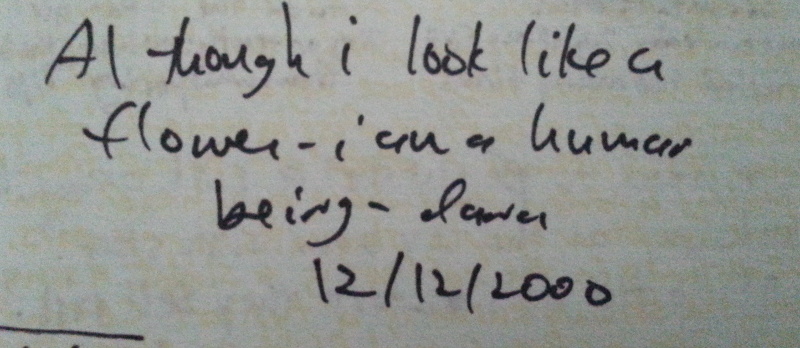 Although i look like a
flower - i am a human
being -
12/12/2000